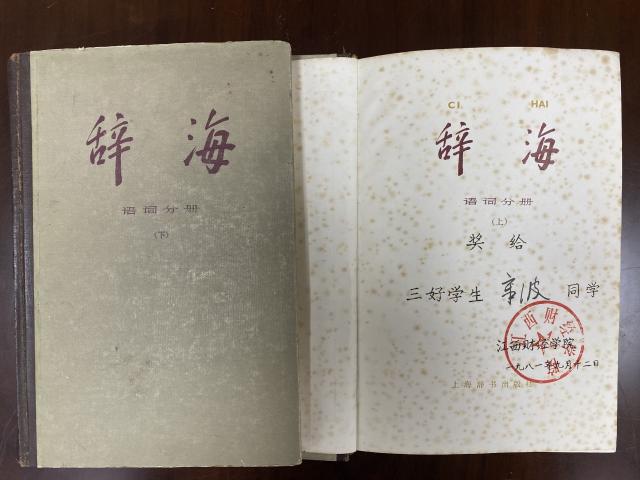 辞海
语词分册
(下)
CI HAI
辞海
语词分册
(上)
奖给
三好学生 章波 同学
江西财经学院
一九八一年九月十二日
上海辞书出版社